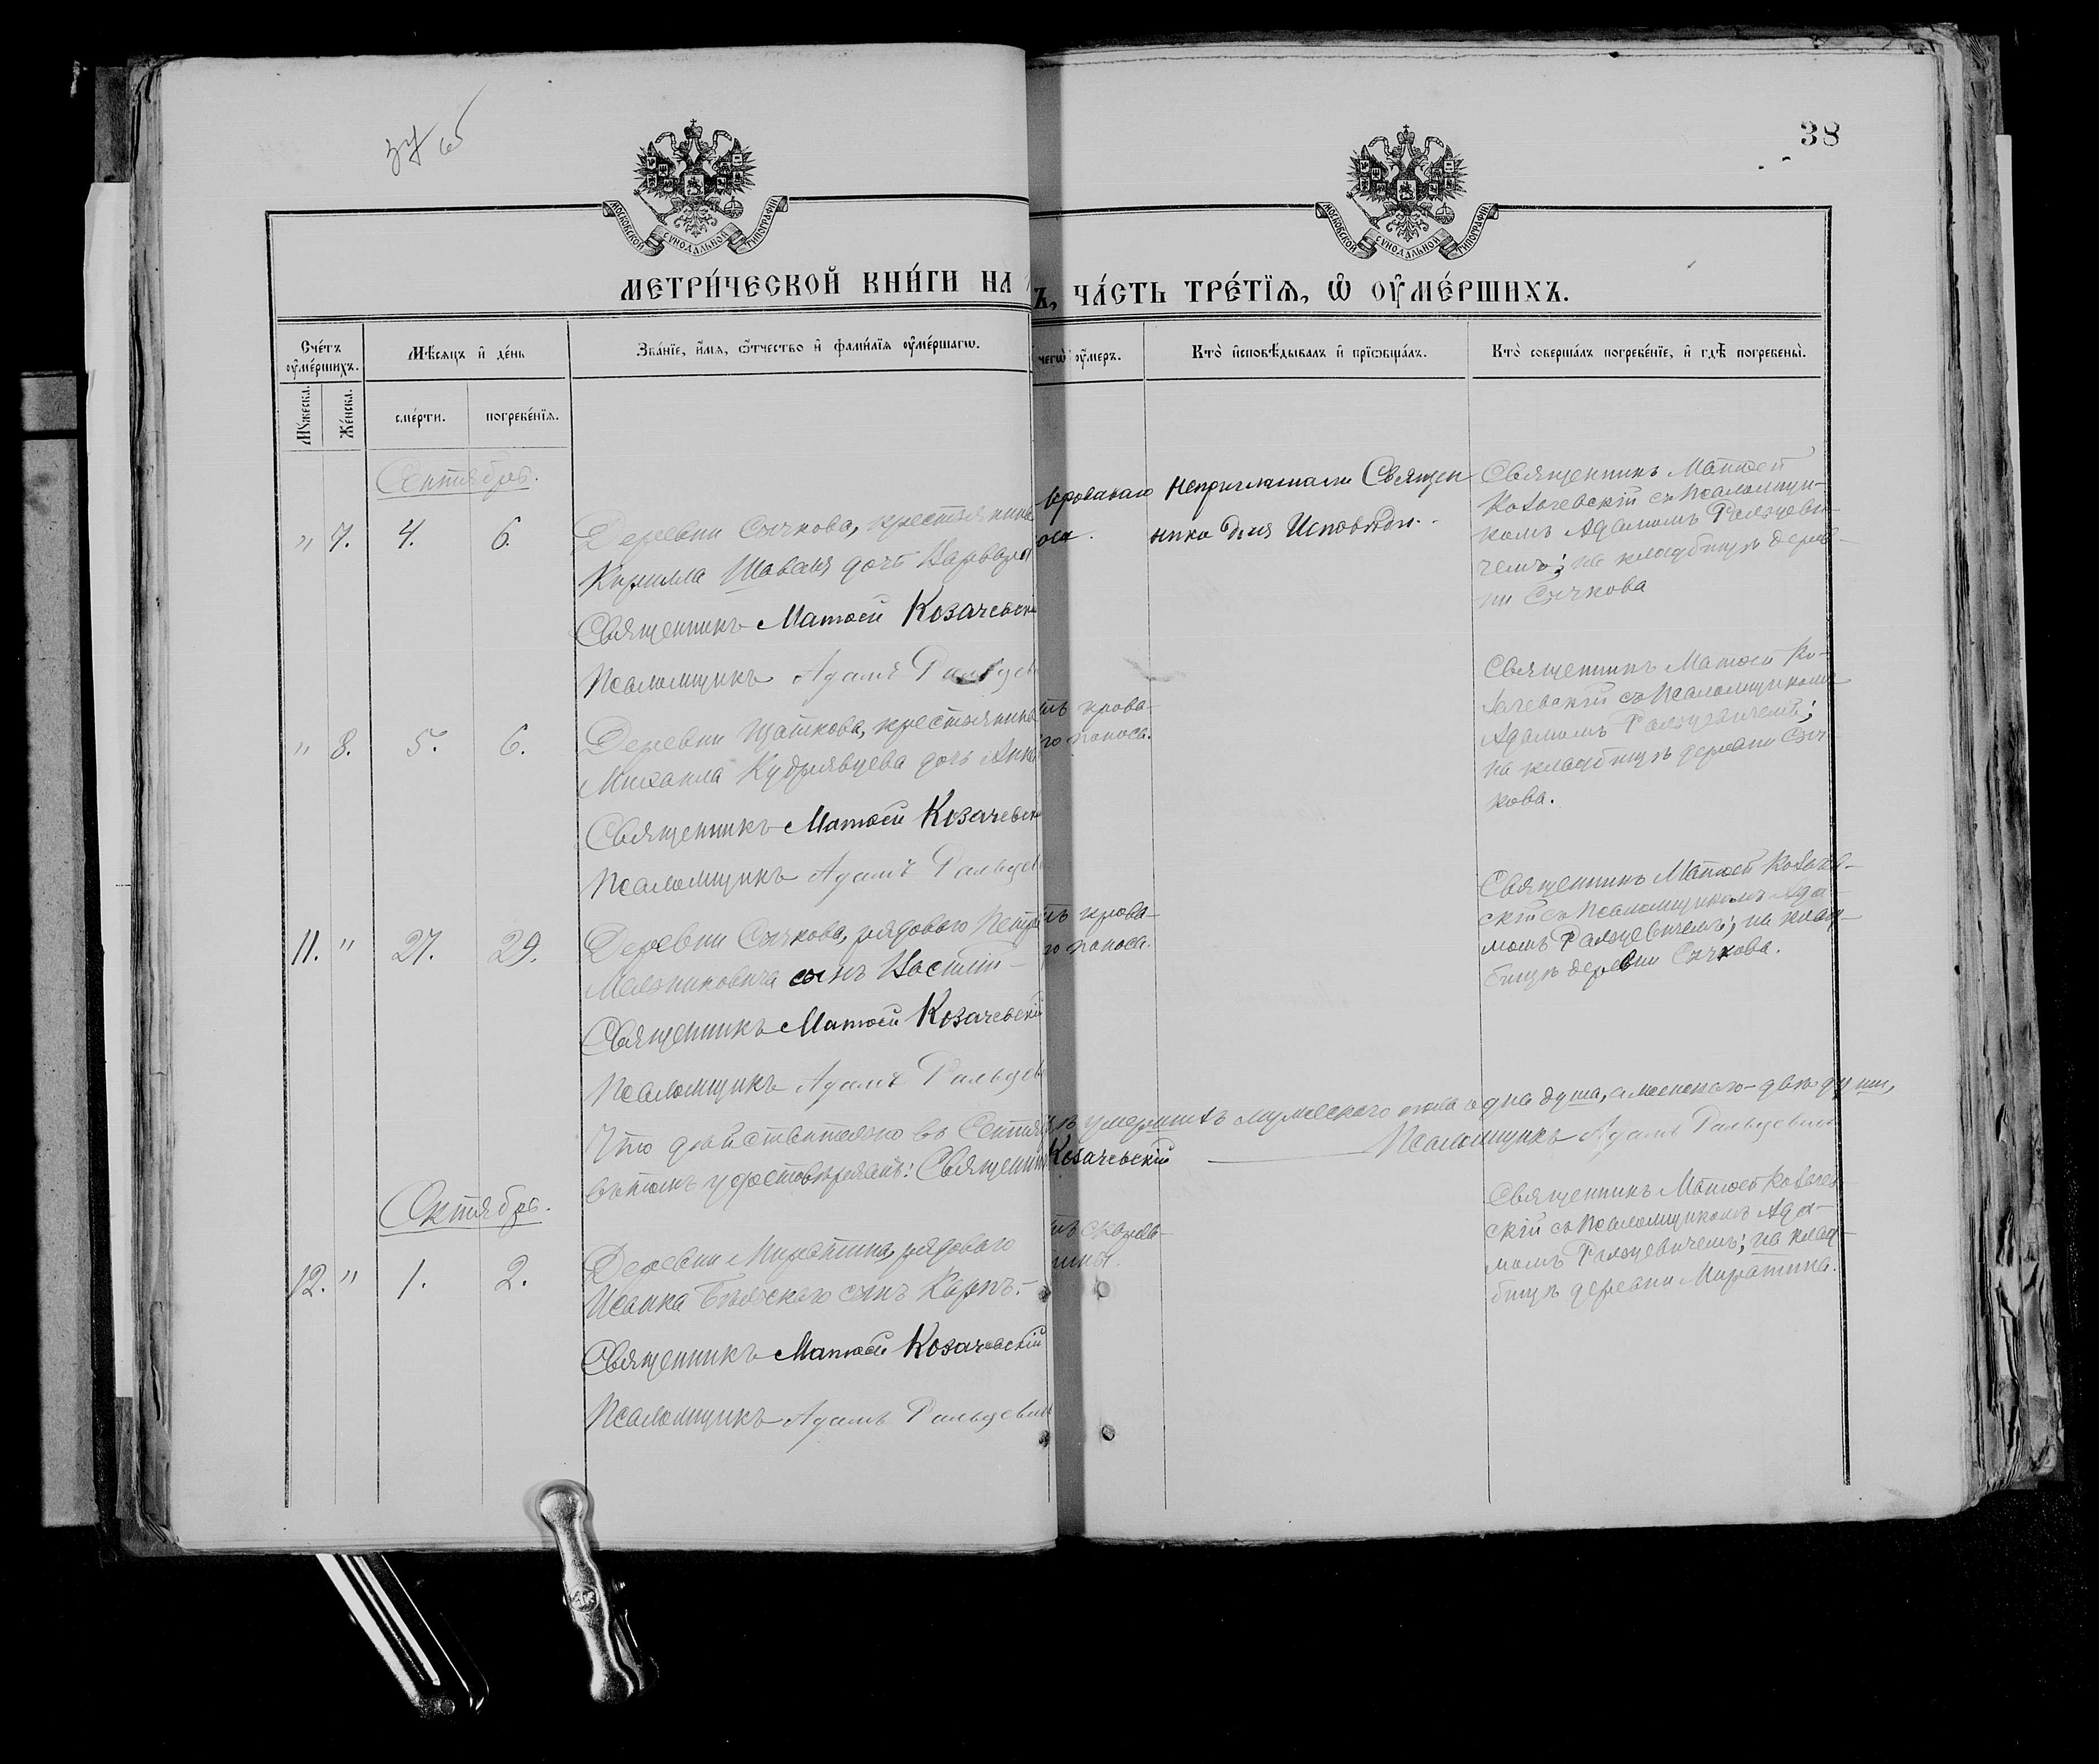 38
МОСКОВСКОЙ СУНОДАЛЬНОЙ ТИПОГРАФІИ
МОСКОВСКОЙ СУНОДАЛЬНОЙ ТИПОГРАФІИ
МЕТРИ́ЧЕСКОЙ КНИ́ГИ НА
Ъ, ЧА́СТЬ ТРЕ́ТЇѦ, Ѡ ОУМЕ́РШИХЪ.
Сче́тъ оуме́ршихъ.
Мѣ́сѧцъ и де́нь
Зва́нїе, и́мѧ, ѻ́тчество и фами́лїѧ оуме́ршагѡ.
чегѡ̀ оу́меръ.
Кто̀ исповѣ́дывалъ и прїѡбща́лъ.
Кто̀ соверша́лъ погребе́нїе, и гдѣ̀ погребены̀.
Мꙋ́жеска.
Же́нска.
сме́рти.
погребе́нїѧ.
Сентябрь.
" 7. 4. 6.
Деревни Сычкова, крестьянина
Кирилла Шаваля дочь Варвара
Священникъ Матѳей Козачевск
Псаломщикъ Адамъ Ральцев
кроваваго
оса.
Неприглашали Священ-
ника для Исповѣди.
Священникъ Матѳей
Козачевскій съ Псаломщи-
комъ Адамомъ Ральцеви-
чемъ; на кладбищѣ дерев-
ни Сычкова
" 8. 5. 6.
Деревни Щаткова, крестьянина
Михаила Кудрявцева дочь Анна
Священникъ Матѳей Козачевск
Псаломщикъ Адамъ Ральцев
тъ крова-
го поноса.
Священникъ Матѳей Ко-
зачевскій съ Псаломщикомъ
Адамомъ Ральцевичемъ;
на кладбищѣ деревни Сыч
кова.
11. " 27. 29.
Деревни Сычкова, рядоваго Петра
сынъ Василій
Священникъ Матѳей Козачевскій
Псаломщикъ Адамъ Ральцев
тъ крова-
го поноса.
Священникъ Матѳей Козачев-
скій съ Псаломщикомъ Ада-
момъ Ральцевичемъ; на клад-
бищѣ деревни Сычкова.
Что дѣйствительно въ Сентяб
ѣ умершихъ мужескаго пола одна душа, а женскаго – двѣ души,
въ томъ удостовѣряемъ: Священник
Козачевскій
Псаломщикъ Адамъ Ральцевич
Октябрь.
12. " 1. 2.
Деревни Миратина, рядоваго
Исаака Бѣльскаго сынъ Карпъ.
Священникъ Матѳей Козачевскій
Псаломщикъ Адамъ Ральцевич
тъ скарла-
тины.
Священникъ Матѳей Козачев
скій съ Псаломщикомъ Ада-
момъ Ральцевичемъ; на клад-
бищѣ деревни Миратина.